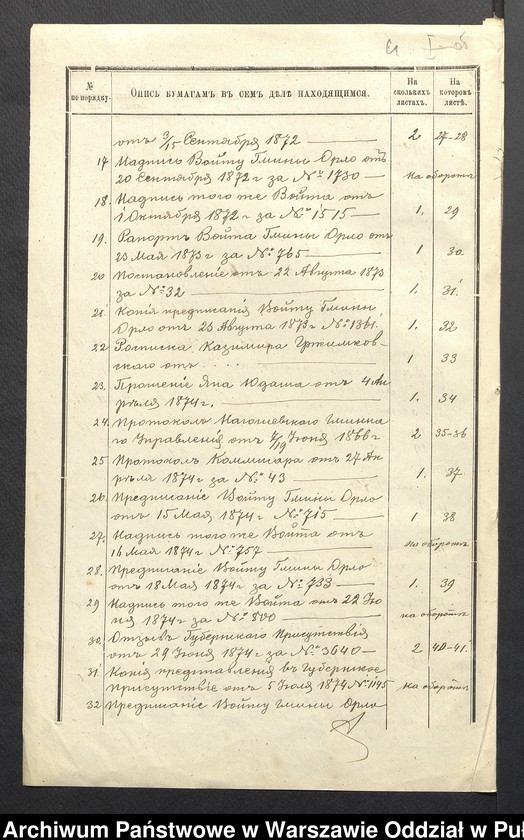 № по порядку.
Опись бумагамъ въ семъ дѣлѣ находящимся.
На сколькихъ листахъ.
На которомъ листѣ.
отъ 3/15 Сентября 1872 2 27-28
17 Надпись Войту Гмины Орло отъ
20 Сентября 1872 г за № 1730 — на оборотѣ
18. Надпись того же Войта отъ
1 Октября 1872 г за № 1515 — 1. 29
19. Рапортъ Войта Гмины Орло отъ
23 Мая 1873 г за № 765 — 1 30.
20 Постановленіе отъ 22 Августа 1873
за № 32 — 1. 31.
21. Копія предписанія Войту Гмины
Орло отъ 23 Августа 1873 г № 1361. 1. 32
22 Росписка Казимира Гржимков-
скаго отъ . . . . 1 33
23. Прошеніе Яна Юдаша отъ 4 Ап
рѣля 1874 г. — 1. 34
24. Протоколъ Нагошевскаго Гминна
го Управленія отъ 7/19 Іюня 1866 г 2 35-36
25 Протоколъ Коммисара отъ 27 Ап
рѣля 1874 г за № 43 — 1. 37
26. Предписаніе Войту Гмины Орло
отъ 15 Мая 1874 г № 715 — 1 38
27. Надпись того же Войта отъ
16 Мая 1874 г № 757 — на оборотѣ
28. Предписаніе Войту Гмины Орло
отъ 18 Мая 1874 г за № 733 — 1. 39
29 Надпись того же Войта отъ 22 Ію
ня 1874 г за № 800 — на оборотѣ
30. Отзывъ Губернскаго Присутствія
отъ 29 Іюня 1874 г за № 3640 — 2 40-41.
31. Копія представленія въ Губернское
Присутствіе отъ 5 Іюля 1874 № 1145 на оборотѣ
32 Предписаніе Войту Гмины Орло
Archiwum Państwowe w Warszawie Oddział w Pu